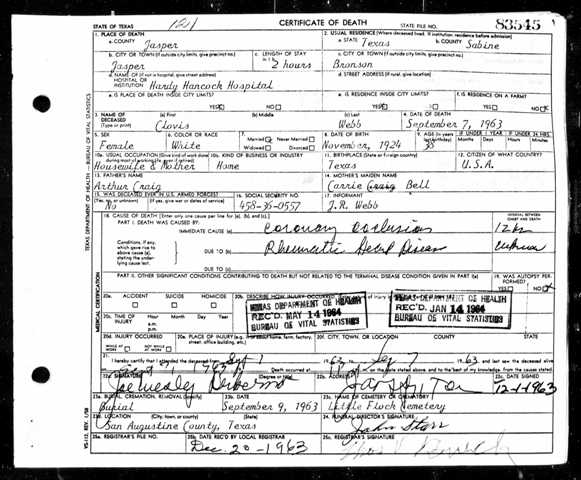 STATE OF TEXAS 121 CERTIFICATE OF DEATH STATE FILE NO. 83545
1. PLACE OF DEATH 2. USUAL RESIDENCE (Where deceased lived. If institution: residence before admission)
a. COUNTY Jasper a. STATE Texas b. COUNTY Sabine
b. CITY OR TOWN (If outside city limits, give precinct no.) c. LENGTH OF STAY c. CITY OR TOWN (If outside city limits, give precinct no.)
Jasper 12 hours Bronson
d. NAME OF (If not in hospital, give street address) HOSPITAL OR INSTITUTION Hardy Hancock Hospital d. STREET ADDRESS (If rural, give location)
e. IS PLACE OF DEATH INSIDE CITY LIMITS? YES NO e. IS RESIDENCE INSIDE CITY LIMITS? YES NO f. IS RESIDENCE ON A FARM? YES NO
3. NAME OF DECEASED (Type or print) (a) First (b) Middle (c) Last 4. DATE OF DEATH
Clovis Webb September 7, 1963
5. SEX 6. COLOR OR RACE 7. Married Never Married Widowed Divorced 8. DATE OF BIRTH 9. AGE IF UNDER 1 YEAR IF UNDER 24 HRS.
Female White November, 1924 38 Months Days Hours
10a. USUAL OCCUPATION (Give kind of work done 10b. KIND OF BUSINESS OR INDUSTRY 11. BIRTHPLACE (State or foreign country) 12. CITIZEN OF WHAT COUNTRY?
Housewife & Mother Home Texas U.S.A.
13. FATHER'S NAME 14. MOTHER'S MAIDEN NAME
Arthur Craig Carrie Craig Bell
15. WAS DECEASED EVER IN U.S. ARMED FORCES? 16. SOCIAL SECURITY NO. 17. INFORMANT
No 458-36-0557 J.R. Webb
18. CAUSE OF DEATH [Enter only one cause per line for (a), (b), and (c).] INTERVAL BETWEEN ONSET AND DEATH
PART I. DEATH WAS CAUSED BY:
IMMEDIATE CAUSE (a) Coronary occlusion
Conditions, if any, which gave rise to above cause (a), stating the underlying cause last. DUE TO (b) Rheumatic Heart Disease unknown
DUE TO (c)
PART II. OTHER SIGNIFICANT CONDITIONS CONTRIBUTING TO DEATH BUT NOT RELATED TO THE TERMINAL DISEASE CONDITION GIVEN IN PART I(a) 19. WAS AUTOPSY PERFORMED? YES NO
20a. ACCIDENT SUICIDE HOMICIDE 20b. DESCRIBE HOW INJURY OCCURRED
TEXAS DEPARTMENT OF HEALTH
REC'D. MAY 14 1964
BUREAU OF VITAL STATISTICS
TEXAS DEPARTMENT OF HEALTH
REC'D. JAN 14 1964
BUREAU OF VITAL STATISTICS
20c. TIME OF INJURY Hour Month Day Year a.m. p.m.
20d. INJURY OCCURRED WHILE AT WORK NOT WHILE AT WORK 20e. PLACE OF INJURY 20f. CITY, TOWN, OR LOCATION COUNTY STATE
21. I hereby certify that I attended the deceased from 63, and last saw the deceased alive
22a. SIGNATURE (Degree or title) 22b. ADDRESS 22c. DATE SIGNED
12-1-1963
23a. BURIAL, CREMATION, REMOVAL (Specify) 23b. DATE 23c. NAME OF CEMETERY OR CREMATORY
Burial September 9, 1963 Little Flock Cemetery
23d. LOCATION (City, town, or county) (State) 24. FUNERAL DIRECTOR'S SIGNATURE
San Augustine County, Texas John Starr
25a. REGISTRAR'S FILE NO. 25b. DATE REC'D BY LOCAL REGISTRAR 25c. REGISTRAR'S SIGNATURE
Dec. 20-1963
TEXAS DEPARTMENT OF HEALTH BUREAU OF VITAL STATISTICS
MEDICAL CERTIFICATION